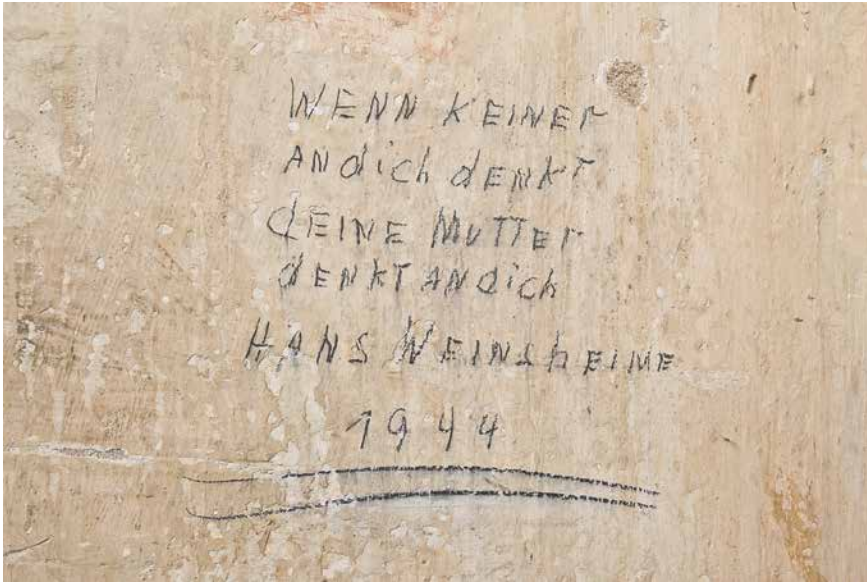 WENN KEINEr
ANdich dENKT
dEINE MUTTEr
dENKT ANdich
HANS WEINShEIME
1944